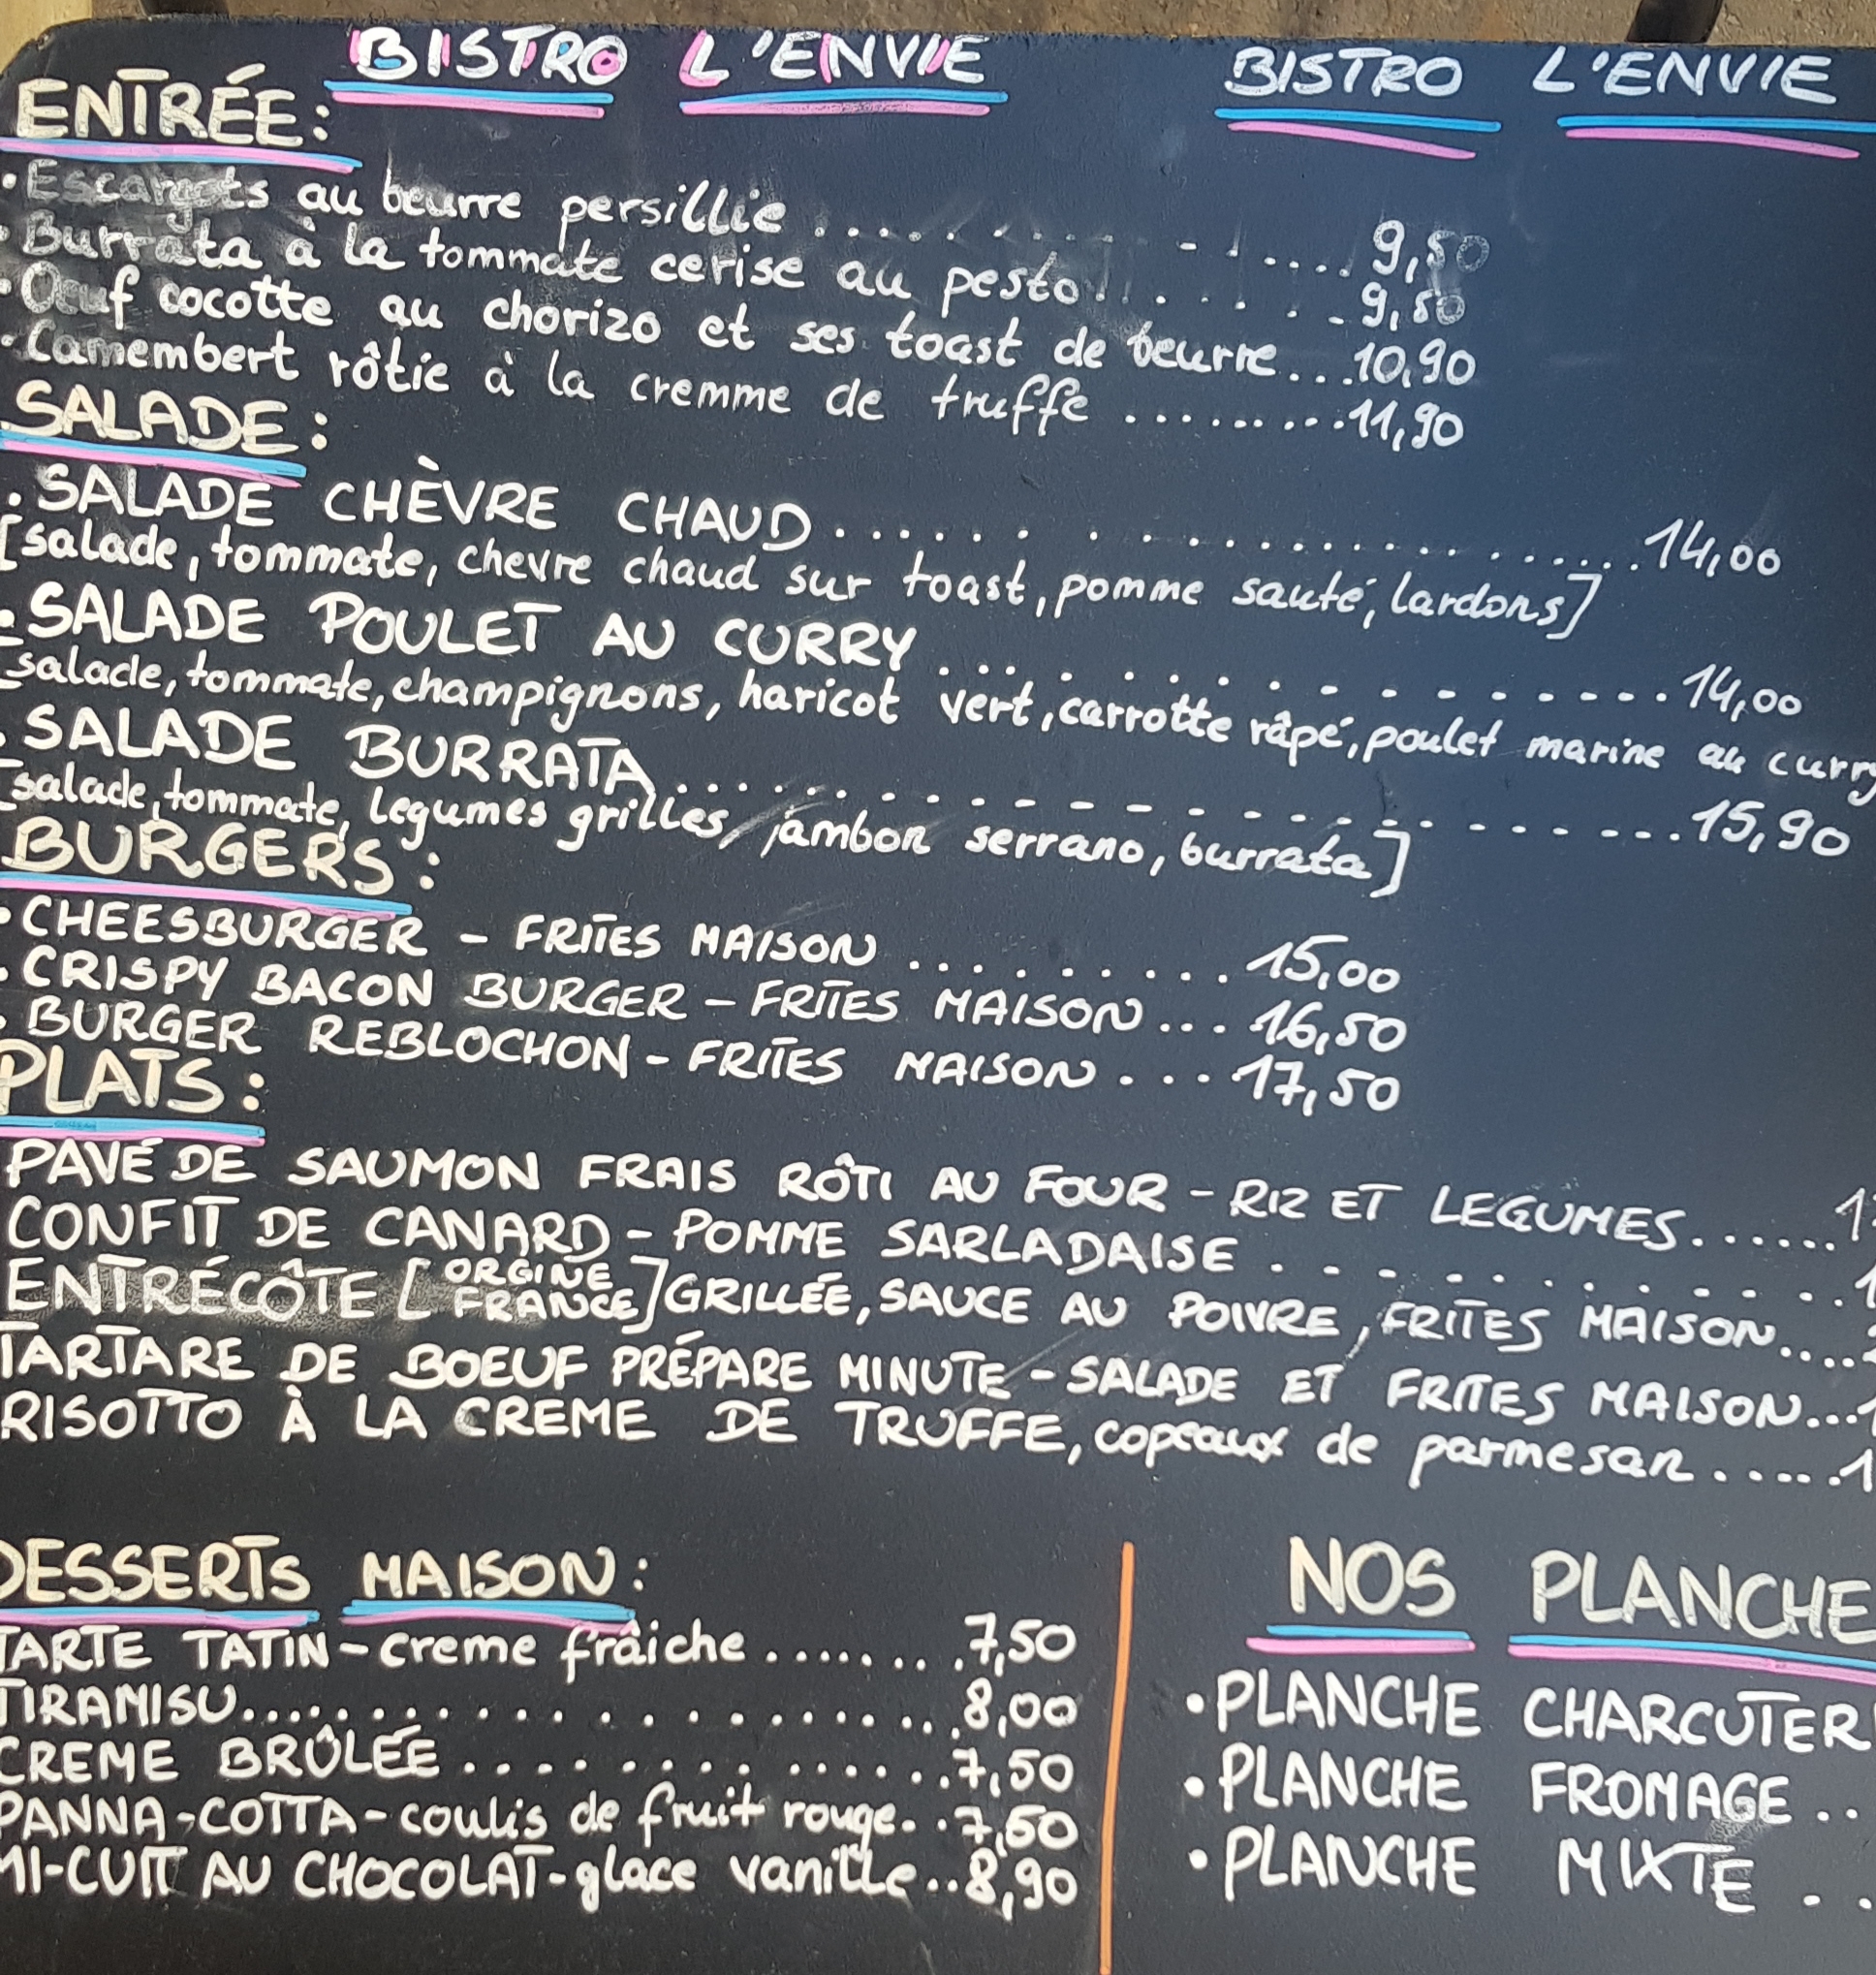 BISTRO L'ENVIE BISTRO L'ENVIE
ENTRÉE:
• Escargots au beurre persillie .................. 9,50
• Burrata à la tommate cerise au pesto ........ 9,50
• Oeuf cocotte au chorizo et ses toast de beurre...10,90
• Camembert rôtie à la cremme de truffe .........11,90
SALADE:
• SALADE CHÈVRE CHAUD ........................14,00
[salade, tommate, chevre chaud sur toast, pomme sauté, lardons]
• SALADE POULET AU CURRY ....................14,00
[salade, tommate, champignons, haricot vert, carrotte râpé, poulet marine au curry
• SALADE BURRATA ............................15,90
[salade, tommate, legumes grilles, jambon serrano, burrata]
BURGERS:
• CHEESBURGER - FRITES MAISON .......... 15,00
• CRISPY BACON BURGER - FRITES MAISON ... 16,50
• BURGER REBLOCHON - FRITES MAISON .... 17,50
PLATS:
PAVÉ DE SAUMON FRAIS RÔTI AU FOUR - RIZ ET LEGUMES.......
CONFIT DE CANARD - POMME SARLADAISE .............
ENTRÉCÔTE [ORGINE FRANCE] GRILLÉE, SAUCE AU POIVRE, FRITES MAISON....
TARTARE DE BOEUF PRÉPARE MINUTE - SALADE ET FRITES MAISON...
RISOTTO À LA CREME DE TRUFFE, copeaux de parmesan......
DESSERTS MAISON:
TARTE TATIN - creme frâiche .........7,50
TIRAMISU....................8,00
CREME BRÛLÉE ................7,50
PANNA-COTTA - coulis de fruit rouge..7,50
MI-CUIT AU CHOCOLAT - glace vanille..8,90
NOS PLANCHE
• PLANCHE CHARCUTER
• PLANCHE FROMAGE ..
• PLANCHE MIXTE ..